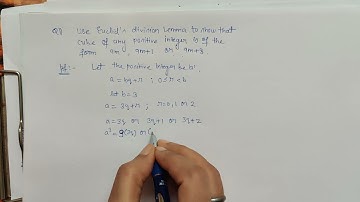 Q1) Use Euclid's division lemma to show that
cube of any positive integer is of the
form 9m, 9m+1 or 9m+8
Let the positive integer be 'a'.
a = bq+r ; 0≤r<b
let b=3
a = 3q+r ; r=0,1 or 2
a=3q or 3q+1 or 3q+2